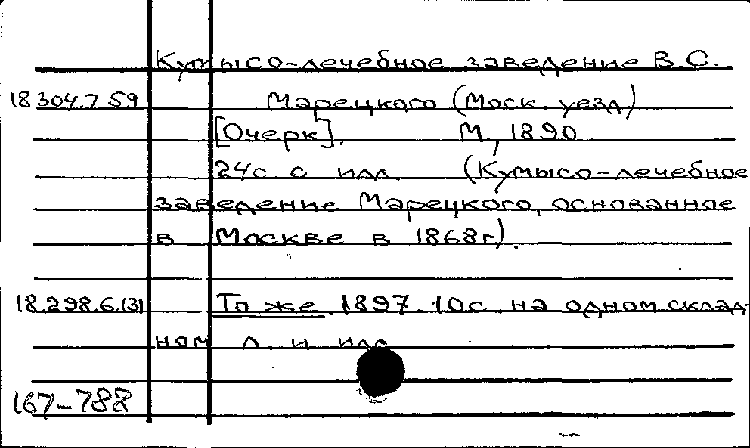 Кумысо-лечебное заведение В.С.
18 304.7 59 Марецкого (Моск. уезд)
[Очерк]. М, 1890
24с. с илл. (Кумысо-лечебное
заведение Марецкого, основанное
в Москве в 1868г).
18.298.6.(3) То же 1897. 10с. на одном склад
ном л. и илл.
167-788